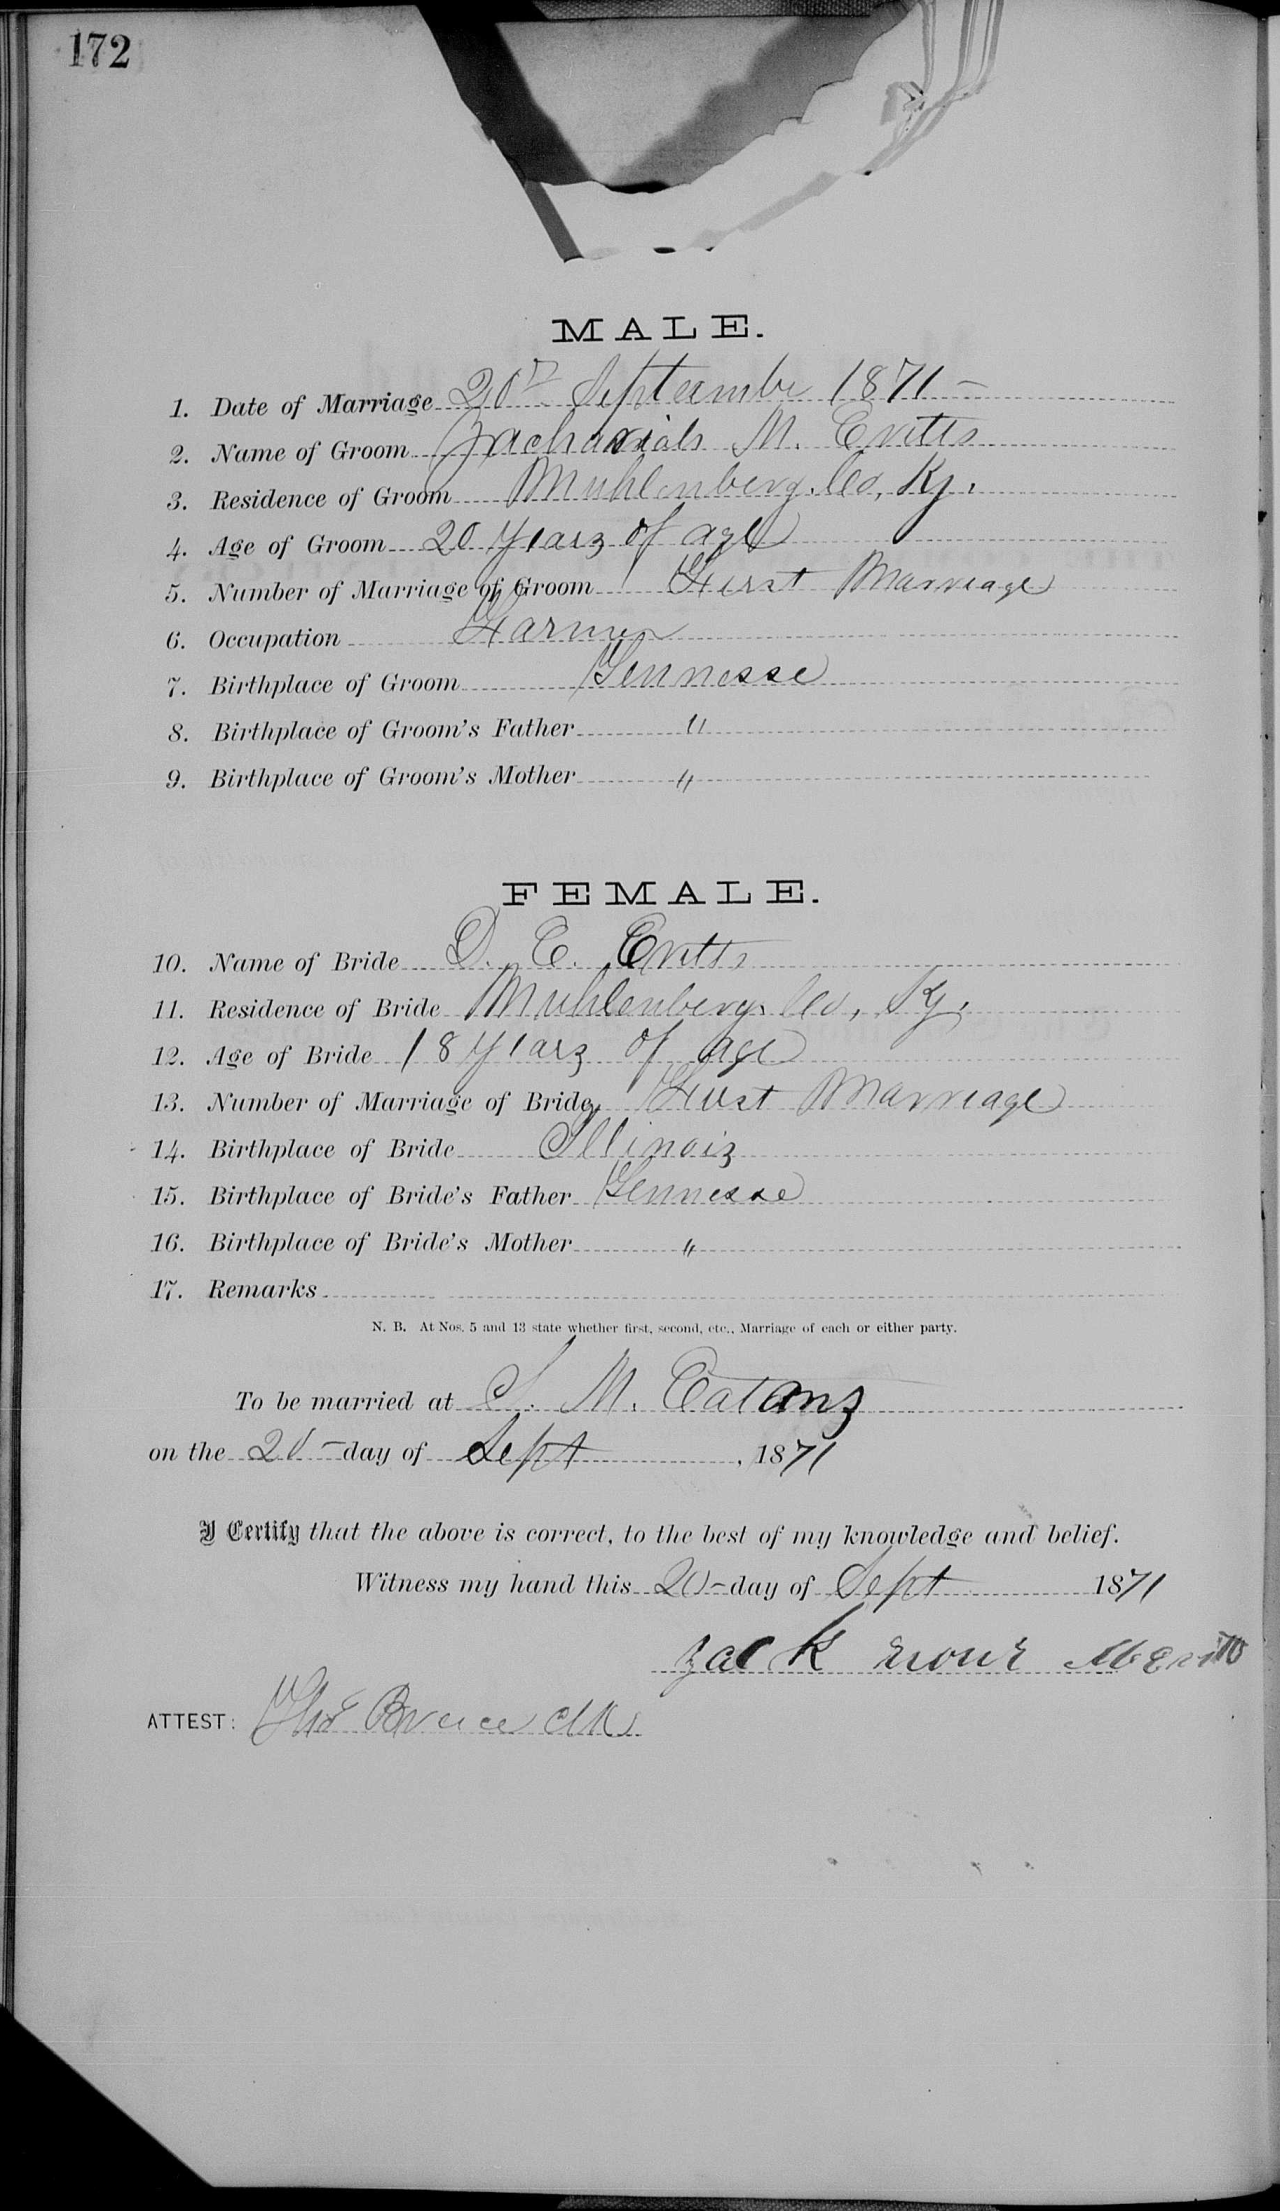 172
MALE.
1. Date of Marriage 20th Septembr 1871 –
2. Name of Groom Zachariah M. Evitts
3. Residence of Groom Muhlenberg. Co, Ky.
4. Age of Groom 20 years of age
5. Number of Marriage of Groom First Marriage
6. Occupation Farmer
7. Birthplace of Groom Tennesse
8. Birthplace of Groom's Father "
9. Birthplace of Groom's Mother "
FEMALE.
10. Name of Bride D. E. Evitts
11. Residence of Bride Muhlenberg. Co, Ky.
12. Age of Bride 18 years of age
13. Number of Marriage of Bride, First Marriage
14. Birthplace of Bride Illinois
15. Birthplace of Bride's Father Tennesse
16. Birthplace of Bride's Mother "
17. Remarks
N. B. At Nos. 5 and 13 state whether first, second, etc., Marriage of each or either party.
To be married at S. M. Eatons
on the 20 – day of Sept, 1871
I Certify that the above is correct, to the best of my knowledge and belief.
Witness my hand this 20 – day of Sept 1871
Zack
ATTEST: Thos Bruce clk